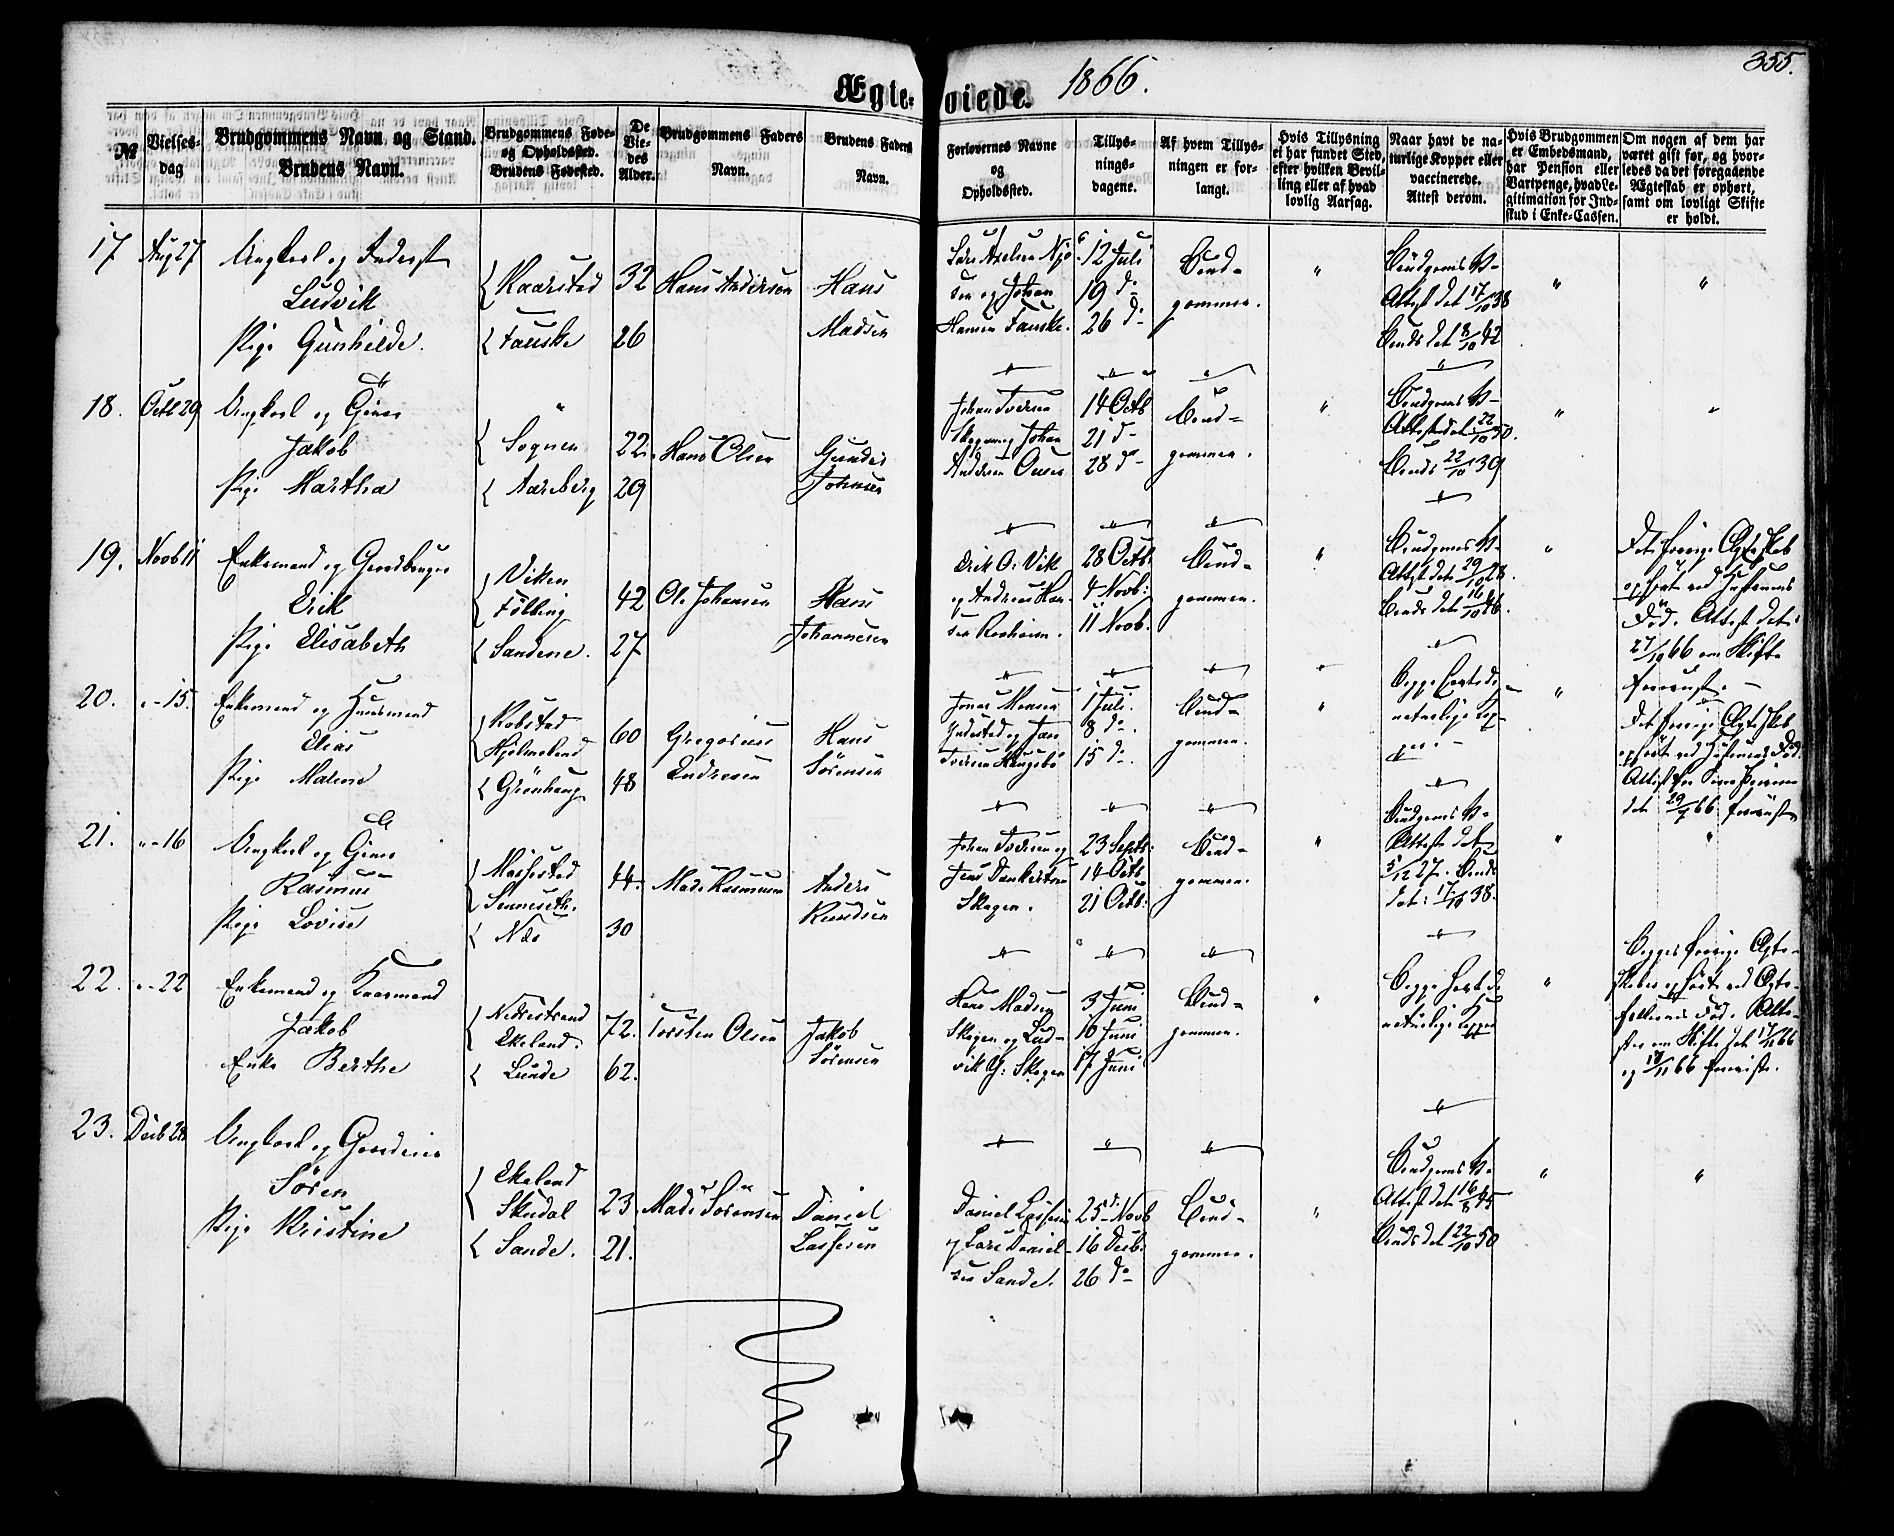 355.
Ægteviede. 1866.
№
Vielses-
dag
Brudgommens Navn og Stand.
Brudens Navn.
Brudgommens Føde-
og Opholdssted.
Brudens Fødested.
De
Vie-
des
Alder.
Brudgommens Faders
Navn.
Brudens Faders
Navn.
Forlovernes Navne
og
Opholdssted.
Tillys-
nings-
dagene.
Af hvem Tillys-
ningen er for-
langt.
Hvis Tillysning
ei har fundet Sted,
efter hvilken Bevil-
ling eller af hvad
lovlig Aarsag.
Naar havt de na-
turlige Kopper eller
vaccinerede.
Attest derom.
Hvis Brudgommen
er Embedsmand,
har Pension eller
Vartpenge, hvad Le-
gitimation for Ind-
skud i Enke-Cassen.
Om nogen af dem har
været gift før, og hvor-
ledes da det foregaaende
Ægteskab er ophørt,
samt om lovligt Skifte
er holdt.
17 Aug 27 Ungkarl og Inderst
Ludvik
Pige Gunhilde.
Kaarstad
Fauske
32
26
Hans Andersen
Hans
Madsen
sen og Johan
Hansen Fauske.
12 Juli
19 do
26 do
Brud-
gommen.
"
Brudgoms V-
Attest dat 17/10 38
Bruds dat 18/10 42
"
"
18. Octb 29 Ungkarl og
Jakob
Pige Martha
Sognen
Aarberg
22.
29
Hans Olsen
Johnsen
Johan Iversen
Skagen og Johan
Andersen
14 Octb
21 do
28 do
Brud-
gommen.
"
Brudgoms V-
Attest dat 22/10 50.
Bruds 22/10 39
"
"
19. Novb 11 Enkemand og Gaardbruger
Erik
Pige Elisabeth
Viken
Følling
Sandene.
42
27
Ole Johansen
Hans
Johannesen
Erik O. Vik
og Andreas Han-
sen
28 Octb:
4 Novb:
11 Novb.
Brud-
gommen.
"
Brudgoms V-
Attest dat 29/10 28.
Bruds dat 16/10 46.
"
Dets forrige Ægteskab
ophørt ved Hustruens
Død. Attest dat:
27/10 66 om Skifte
forevist. -
20. " - 15. Enkemand og Huusmand
Elias
Pige Malene
Robstad
Hjelmeland
Grönhaug
60
48
Gregorius
Andresen
Hans
Sørensen
Jonas Monsen
Indrestad og Jan
Iversen Haugsbø
1 Juli.
8 do.
15 do.
Brud-
gommen.
"
Begge havt de
naturlige Kop-
per. -
"
Det forrige Ægteskab
ophørt ved Hustruens Død.
dat 29/7 66 forevist
21. " - 16 Ungkarl og
Rasmus
Pige Lovise
Massestad
Senneseth.
Næs
44.
30
Mads Rasmussen
Anders
Knudsen
Johan Iversen og
Jens Dankertsen
Skagen.
23 Septb:
14 Octb
21 Octb:
Brud-
gommen.
"
Brudgoms V-
Attest dat
5/12 27. Bruds
dat: 17/10 38.
"
"
22. " - 22 Enkemand og Kaarmand
Jakob
Enke Berthe
Nedrestrand
Ekeland.
Lunde
72.
62.
Torsten Olsen
Jakob
Sörensen
Hans Madsen
Skagen og Lud-
vik G: Skagen
3 Juni
10 Juni
17 Juni
Brud-
gommen.
"
Begge havt de
naturlige Kopper
"
Begges forrige Ægte-
skaber ophørt ved Ægte-
fællernes Død. Atte-
ster om Skifte dat 17/11 66
og 17/11 66 foreviste.
23. Decb 26 Ungkarl og
Søren
Pige Kristine
Ekeland
Skudal
Sande.
23
21.
Mads Sørensen
Daniel
Lassesen
Daniel Lassesen
og Lars Daniel-
sen Sande.
25 Novb
16 Decb:
26 do
Brud-
gommen.
"
Brudgoms V-
Attest dat 16/8 45
Bruds dat 22/10 50
"
"